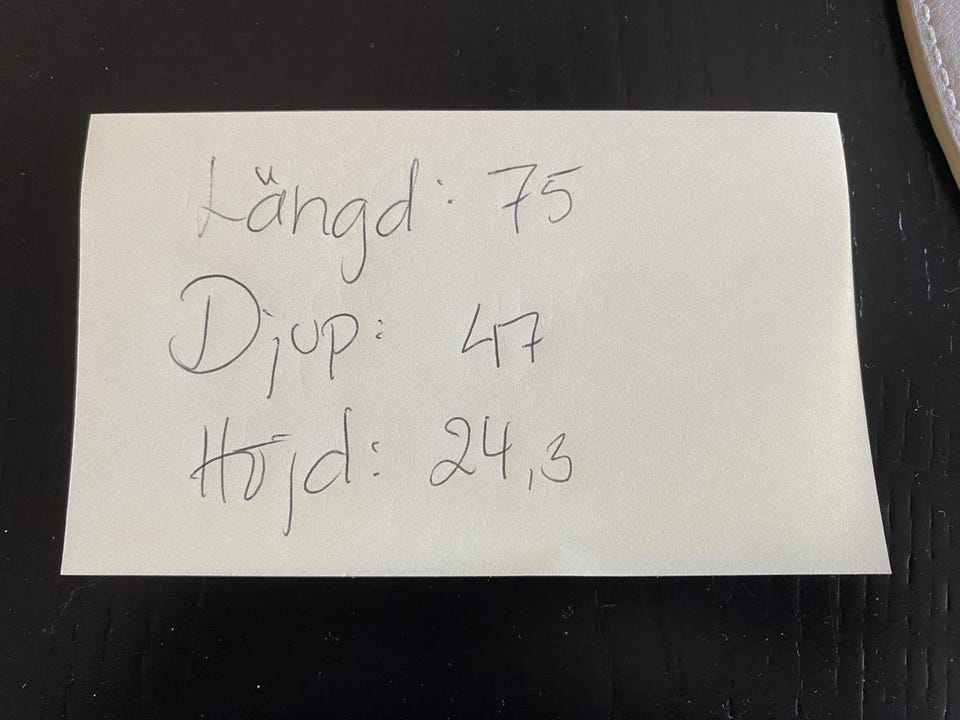 Längd: 75
Djup: 47
Höjd: 24,3